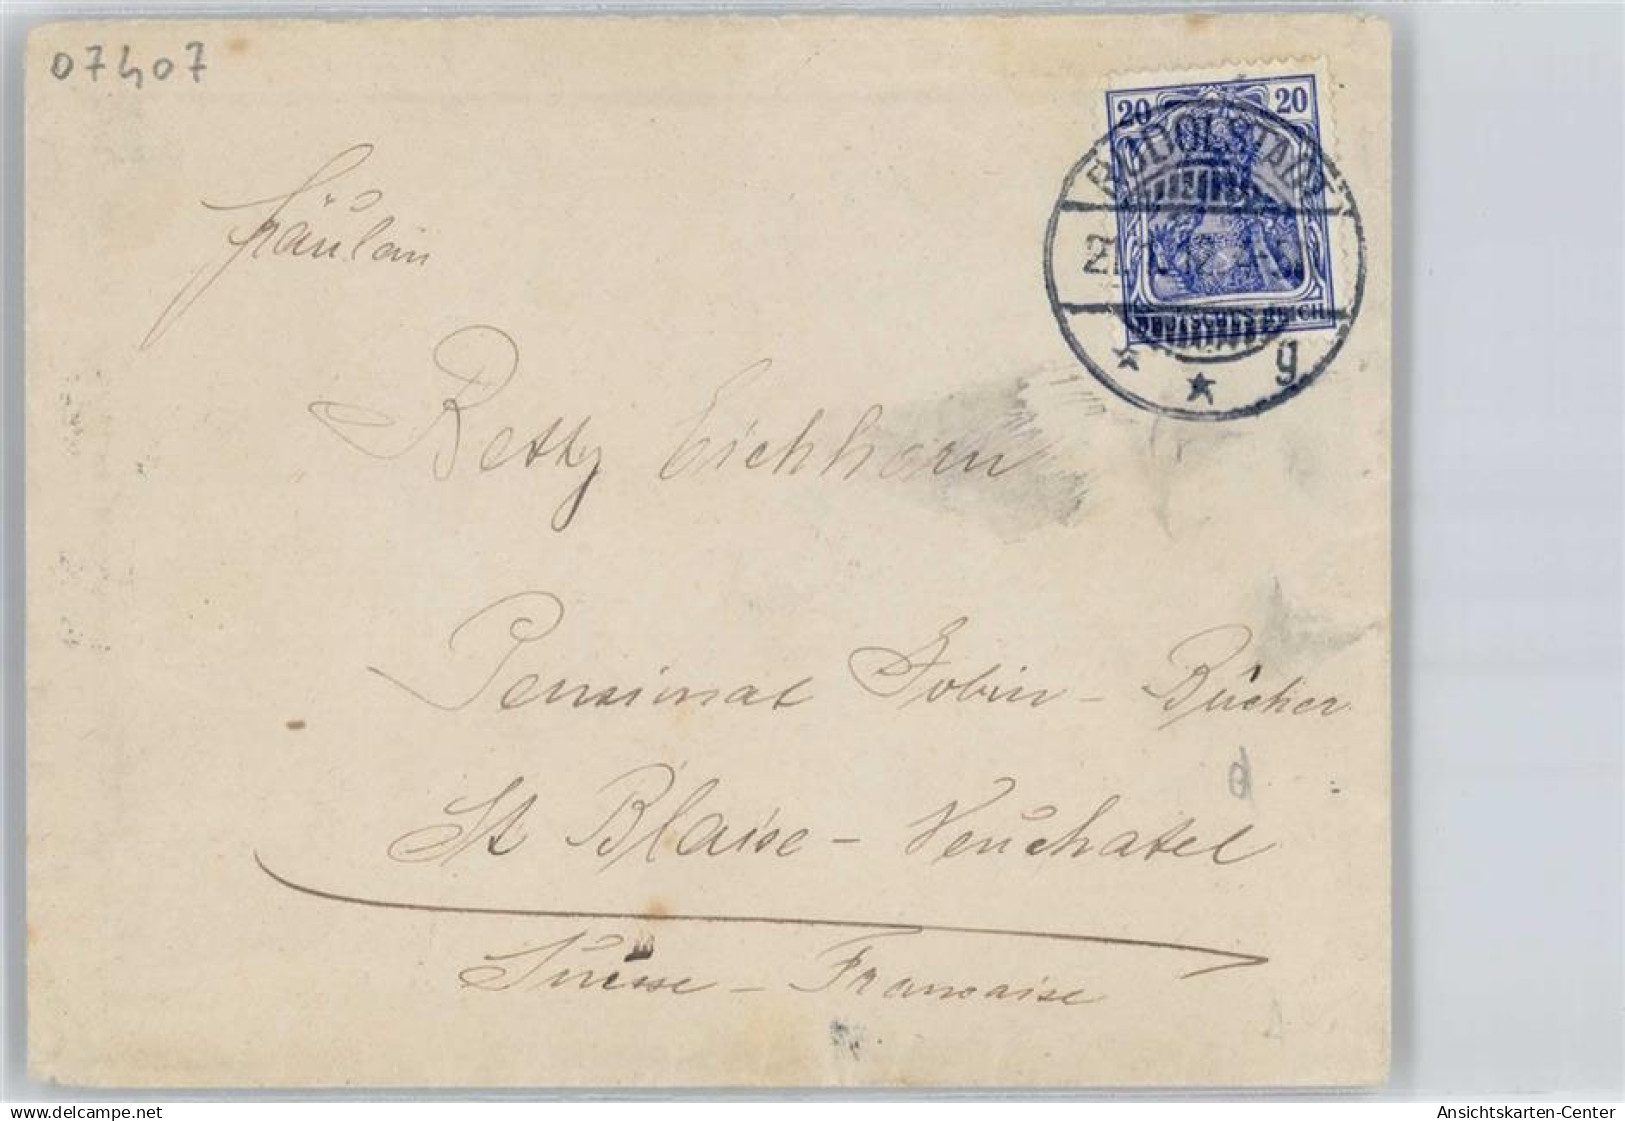 07407
20 20
RUDOLSTADT
DEUTSCHES REICH
* * g
Fräulein
Betty Eichhorn
Pensionat Tobin - Bücher
St Blaise - Neuchatel
Suisse - Francaise
delcampe.net
Ansichtskarten-Center